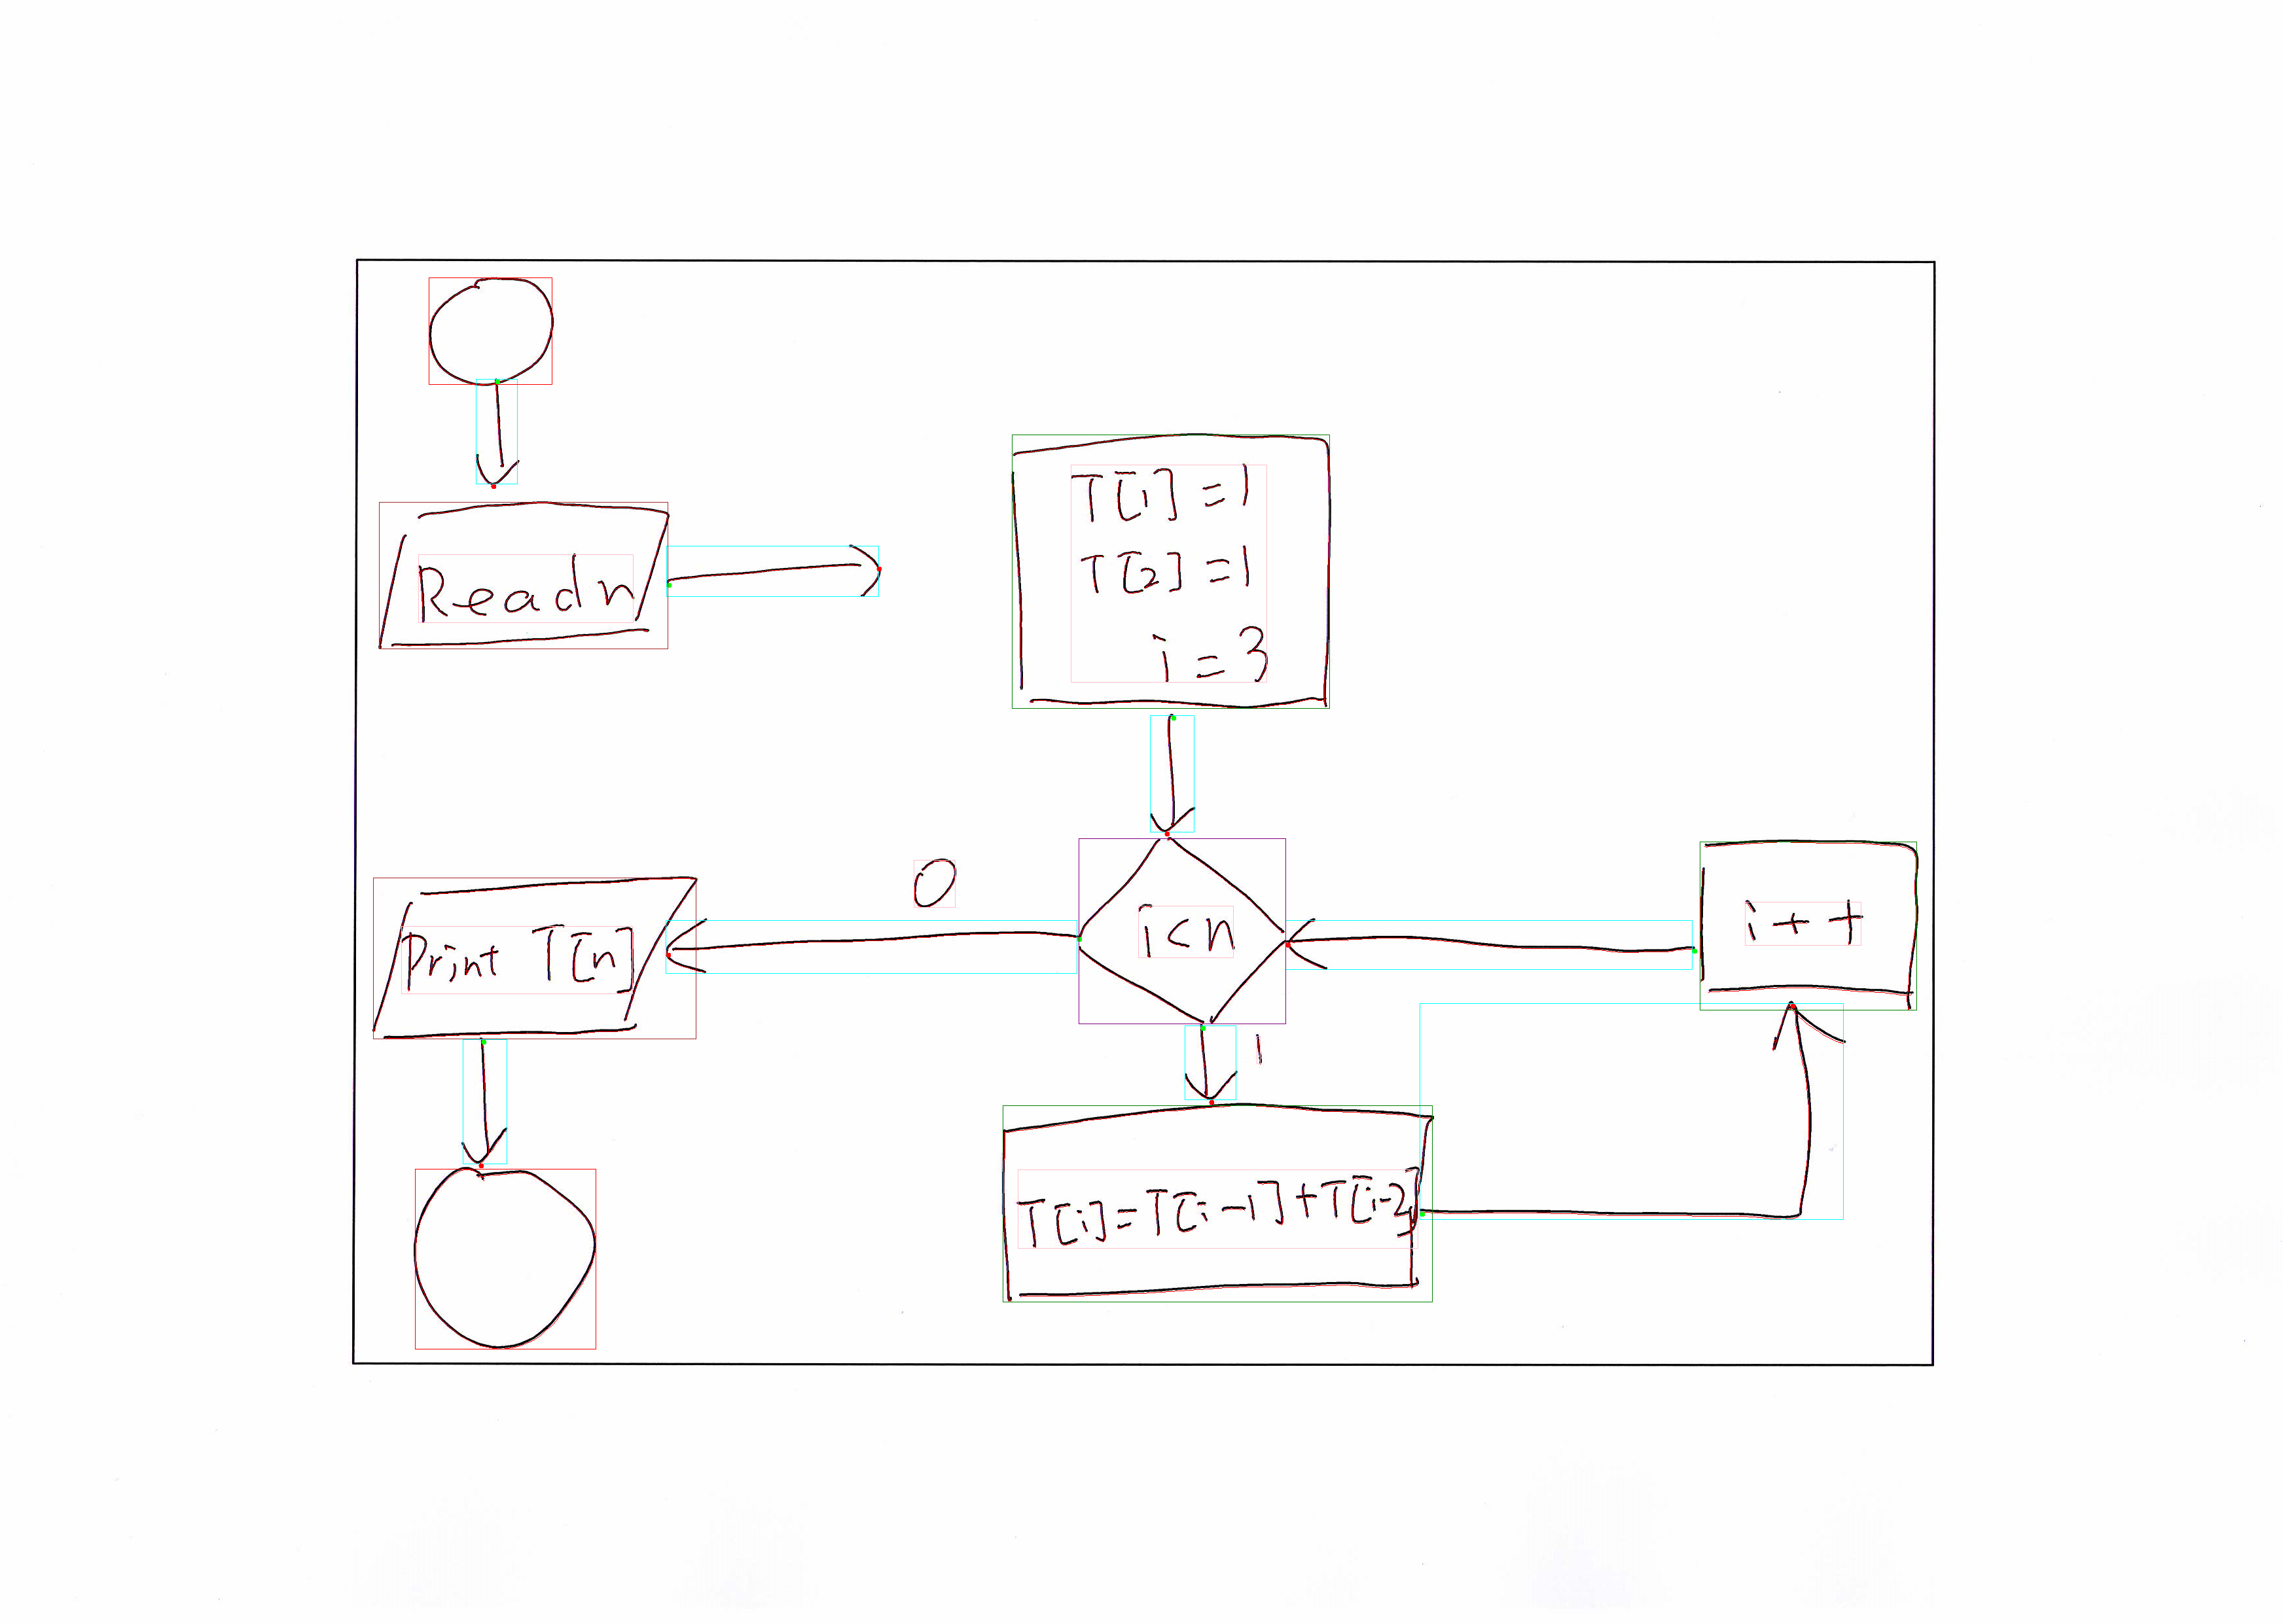 Read n
T[1]=1
T[2]=1
i=3
0
i<n
i++
Print T[n]
1
T[i]=T[i-1]+T[i-2]